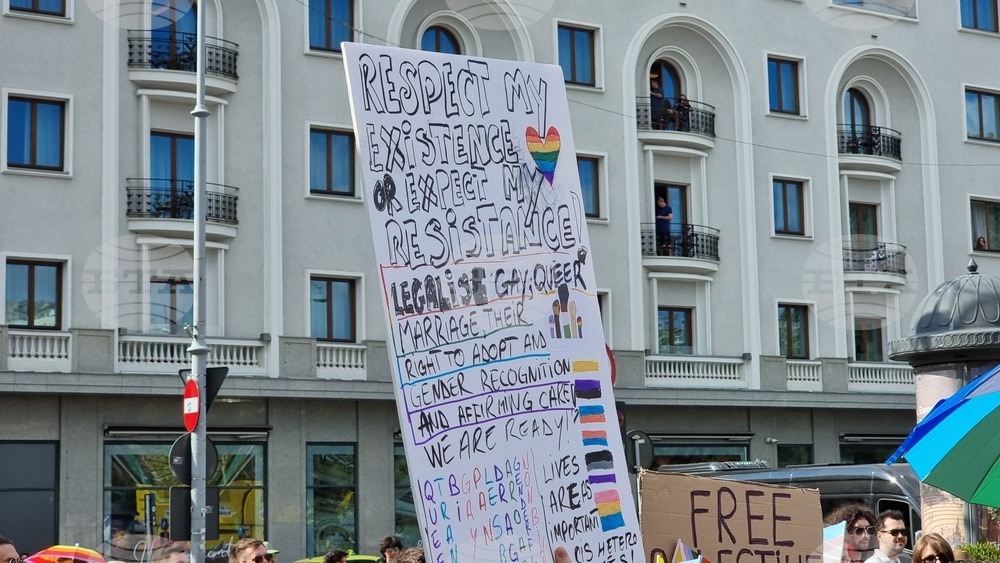 RESPECT MY
EXISTENCE
OR EXPECT MY
RESISTANCE!
LEGALISE GAY, QUEER
MARRIAGE THEIR
RIGHT TO ADOPT AND
GENDER RECOGNITION
AND AFFIRMING CARE!
WE ARE READY!
LIVES
AREAS
IMPORTANT
CIS HETERO
FREE
BTA